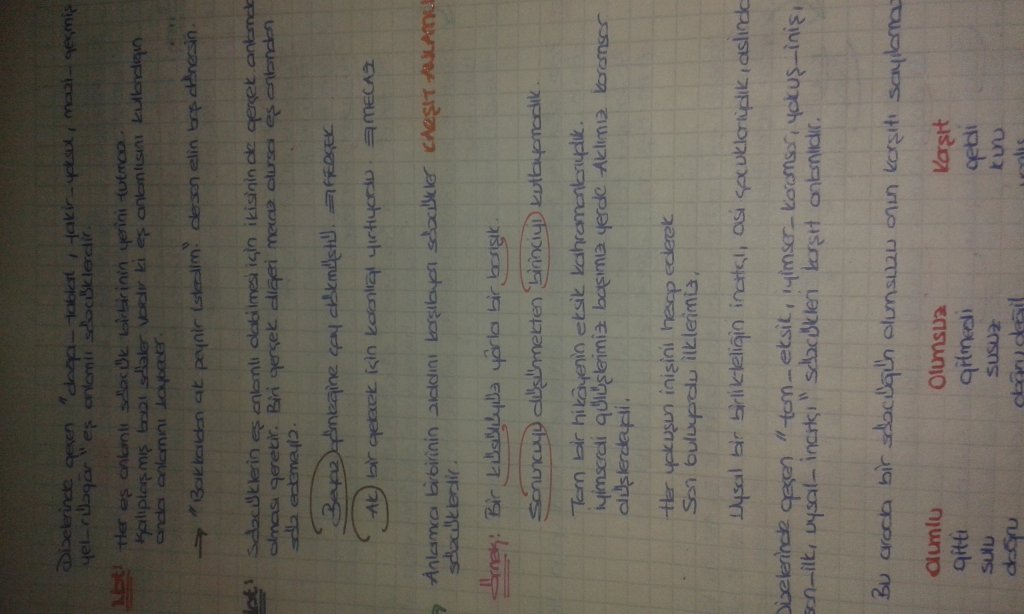 Dizelerinde geçen "doğa_tabiat, fakir_yoksul, mazi_geçmiş
yel_rüzgar" eş anlamlı sözcüklerdir.
Not: Her eş anlamlı sözcük birbirinin yerini tutmaz.
Kalıplaşmış bazı sözler vardır ki eş anlamlısını kullandığın
anda anlamını kaybeder.
→ "Bakkaldan ak peynir istedim" desen elin boş dönersin.
Not: Sözcüklerin eş anlamlı olabilmesi için ikisinin de gerçek anlamda
olması gerekir. Biri gerçek diğeri mecaz olursa eş anlamdan
söz edemeyiz.
Beyaz gömleğine çay dökmüştü. ⇒ GERÇEK
Ak bir gelecek için karanlığı yırtıyordu. ⇒ MECAZ
KARŞIT ANLAMLI
→ Anlamca birbirinin zıddını karşılayan sözcükler
sözcüklerdir.
Örnek: Bir küslüğüyüz yarla bir barışık.
Sonuncuyu düşünmekten birinciyi kutlayamadık.
Tam bir hikayenin eksik kahramanlarıydık.
iyimserdi gülüşlerimiz başımız yerde Aklımız karamsar
düşlerdeydi.
Her yokuşun inişini hesap ederek
Son buluyordu ilklerimiz.
Uysal bir birlikteliğin inatçı, asi çocuklarıydık, aslında
Dizelerinde geçen "tam_eksik, iyimser_karamsar, yokuş_iniş,
son_ilk, uysal_inatçı" sözcükleri karşıt anlamlıdır.
Bu arada bir sözcüğün olumsuzu onun karşıtı sayılamaz
Olumlu Olumsuz Karşıt
gitti gitmedi geldi
sulu susuz kuru
doğru doğru değil yanlış